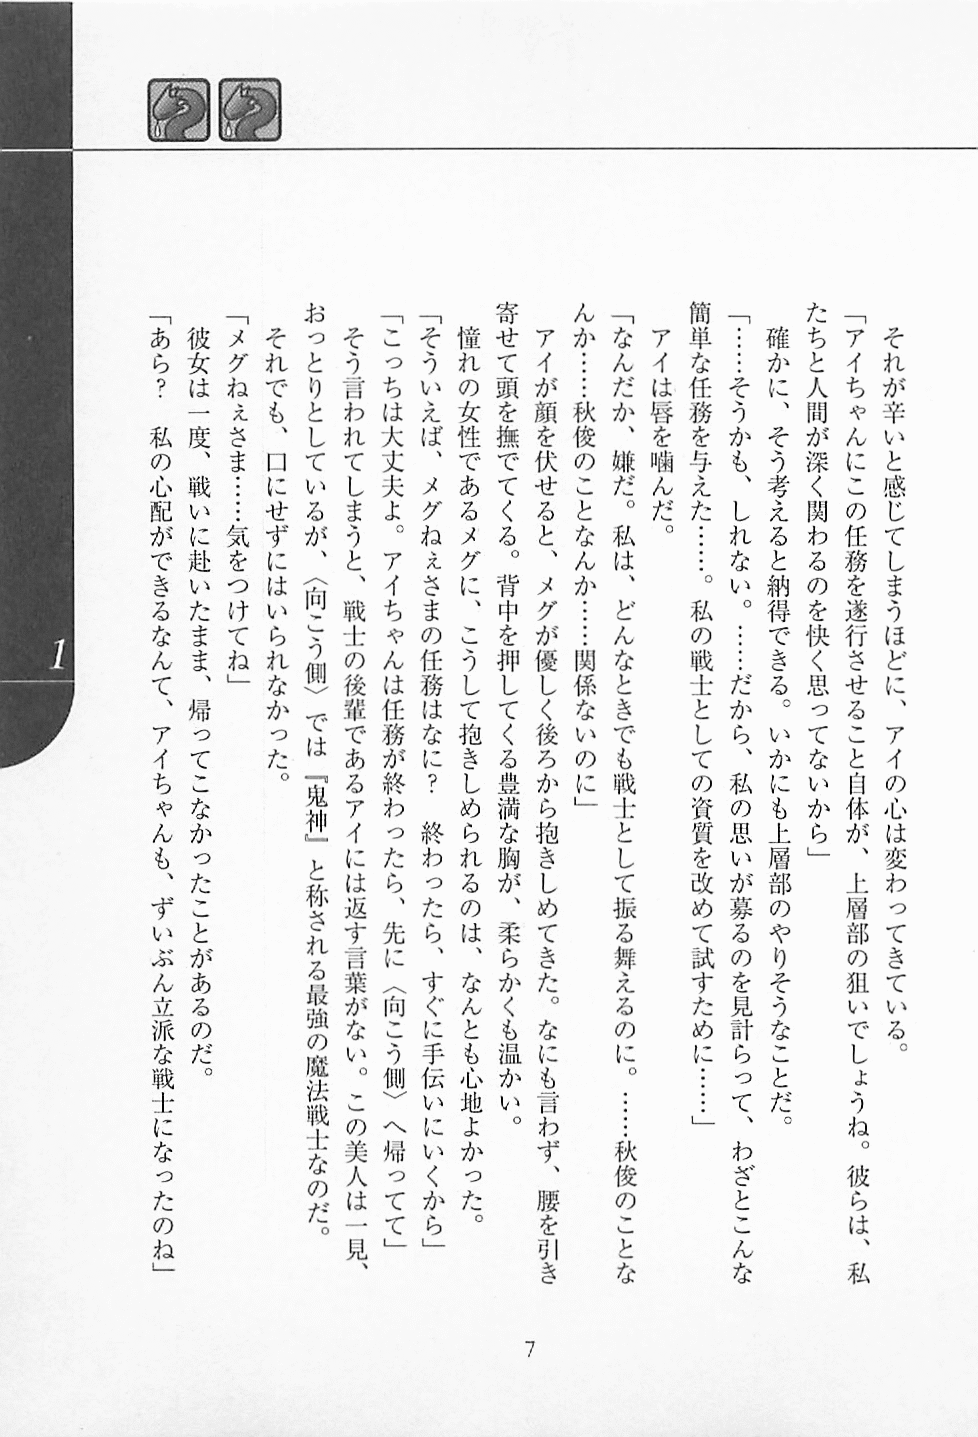 それが辛いと感じてしまうほどに、アイの心は変わってきている。
「アイちゃんにこの任務を遂行させること自体が、上層部の狙いでしょうね。彼らは、私
たちと人間が深く関わるのを快く思ってないから」
確かに、そう考えると納得できる。いかにも上層部のやりそうなことだ。
「……そうかも、しれない。……だから、私の思いが募るのを見計らって、わざとこんな
簡単な任務を与えた……。私の戦士としての資質を改めて試すために……」
アイは唇を噛んだ。
「なんだか、嫌だ。私は、どんなときでも戦士として振る舞えるのに。……秋俊のことな
んか……秋俊のことなんか……関係ないのに」
アイが顔を伏せると、メグが優しく後ろから抱きしめてきた。なにも言わず、腰を引き
寄せて頭を撫でてくる。背中を押してくる豊満な胸が、柔らかくも温かい。
憧れの女性であるメグに、こうして抱きしめられるのは、なんとも心地よかった。
「そういえば、メグねぇさまの任務はなに？　終わったら、すぐに手伝いにいくから」
「こっちは大丈夫よ。アイちゃんは任務が終わったら、先に〈向こう側〉へ帰ってて」
そう言われてしまうと、戦士の後輩であるアイには返す言葉がない。この美人は一見、
おっとりとしているが、〈向こう側〉では『鬼神』と称される最強の魔法戦士なのだ。
それでも、口にせずにはいられなかった。
「メグねぇさま……気をつけてね」
彼女は一度、戦いに赴いたまま、帰ってこなかったことがあるのだ。
「あら？　私の心配ができるなんて、アイちゃんも、ずいぶん立派な戦士になったのね」
1
7